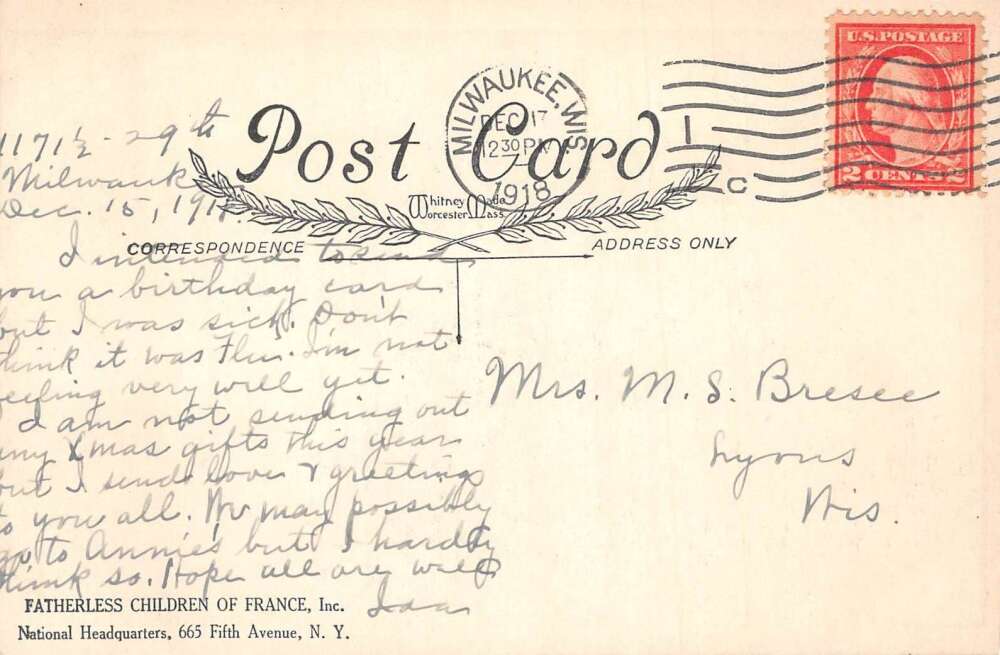 Post Card
MILWAUKEE, WIS
DEC 17
12 30 PM
1918
1
C
U.S. POSTAGE
2 CENTS 2
Whitney Made
Worcester Mass
CORRESPONDENCE
ADDRESS ONLY
1171½ - 29th
Milwauk
Dec. 15, 191
I intended to send
you a birthday card
but I was sick. Don't
think it was Flu. I'm not
feeling very well yet.
I am not sending out
any Xmas gifts this year
but I send love & greetings
to you all. We may possibly
go to Annie's but I hardly
think so. Hope all are well
Ida
Mrs. M. S. Bresee
Lyons
Wis.
FATHERLESS CHILDREN OF FRANCE, Inc.
National Headquarters, 665 Fifth Avenue, N. Y.